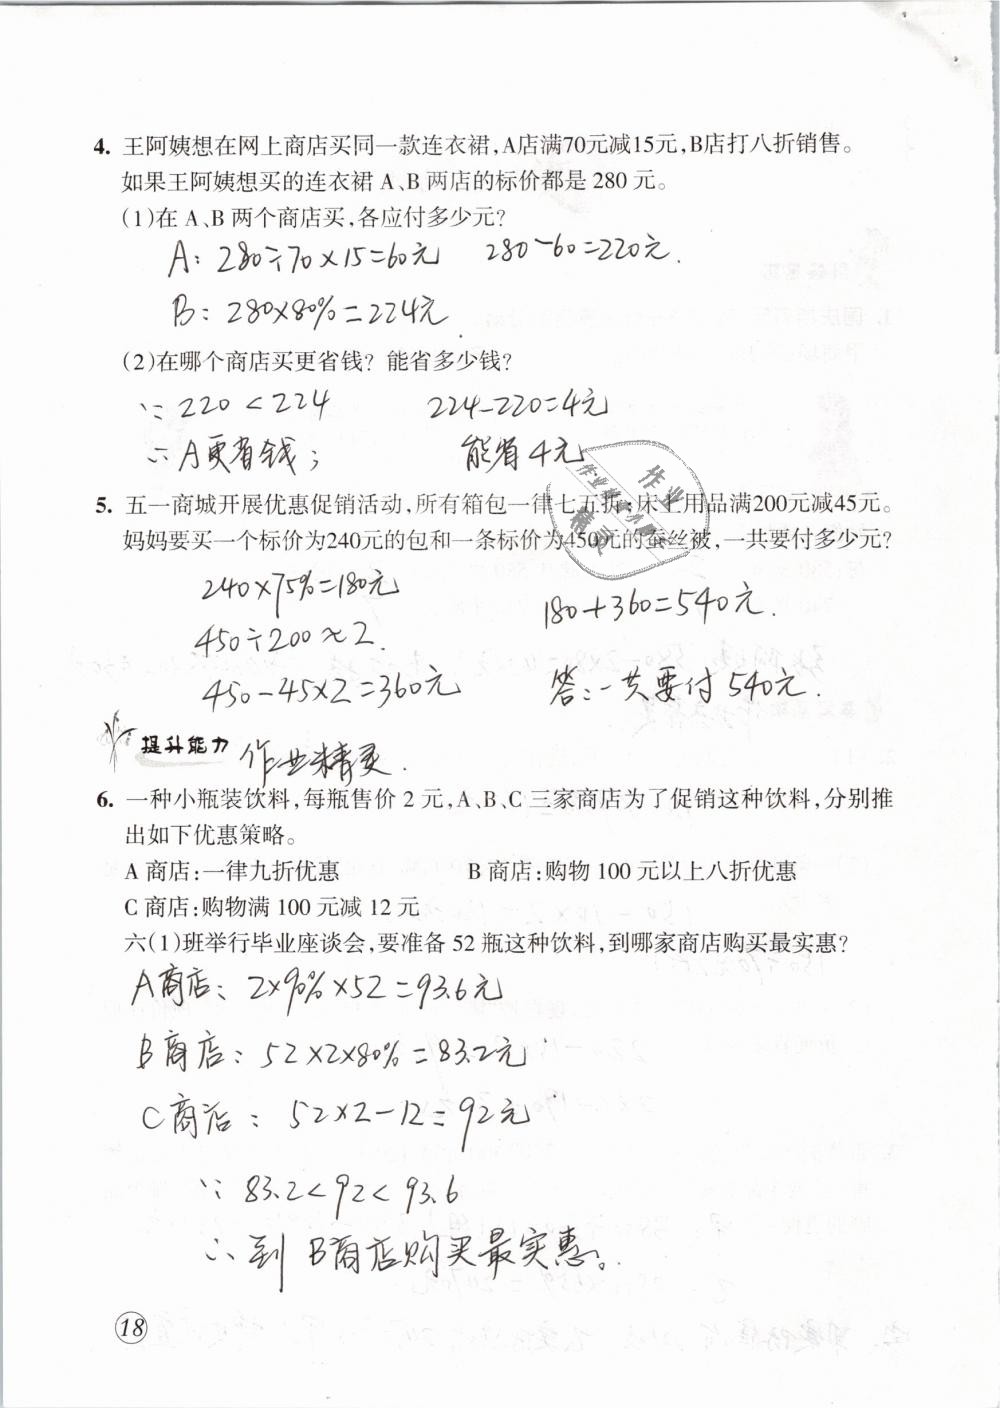 4. 王阿姨想在网上商店买同一款连衣裙,A店满70元减15元,B店打八折销售。
如果王阿姨想买的连衣裙 A、B 两店的标价都是 280 元。
(1)在 A、B 两个商店买,各应付多少元?
A: 280÷70×15=60元 280-60=220元.
B: 280×80%=224元
(2)在哪个商店买更省钱? 能省多少钱?
∵ 220<224 224-220=4元
∴ A更省钱; 能省4元
作业
作业检查小助手
精灵
5. 五一商城开展优惠促销活动,所有箱包一律七五折;床上用品满200元减45元。
妈妈要买一个标价为240元的包和一条标价为450元的蚕丝被,一共要付多少元?
240×75%=180元 180+360=540元.
450÷200≈2.
450-45×2=360元 答:一共要付540元.
提升能力 作业精灵.
6. 一种小瓶装饮料,每瓶售价 2 元,A、B、C 三家商店为了促销这种饮料,分别推
出如下优惠策略。
A 商店:一律九折优惠 B 商店:购物 100 元以上八折优惠
C 商店:购物满 100 元减 12 元
六(1)班举行毕业座谈会,要准备 52 瓶这种饮料,到哪家商店购买最实惠?
A商店: 2×90%×52=93.6元
B商店: 52×2×80%=83.2元
C商店: 52×2-12=92元
∵ 83.2<92<93.6
∴ 到B商店购买最实惠。
18